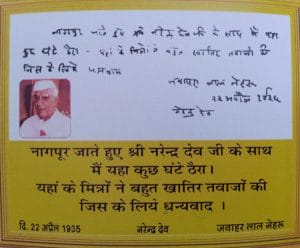 नागपूर जाते हुए श्री नरेन्द्र देव जी के साथ मैं यहा
कुछ घंटे ठैरा। यहां के मित्रों ने बहुत खातिर तवाजो की
जिस के लिये धन्यवाद
जवाहर लाल नेहरू
नरेन्द्र देव
नागपूर जाते हुए श्री नरेन्द्र देव जी के साथ
मैं यहा कुछ घंटे ठैरा।
यहां के मित्रों ने बहुत खातिर तवाजों की
जिस के लिये धन्यवाद ।
दि. 22 अप्रैल 1935 नरेन्द्र देव जवाहर लाल नेहरू